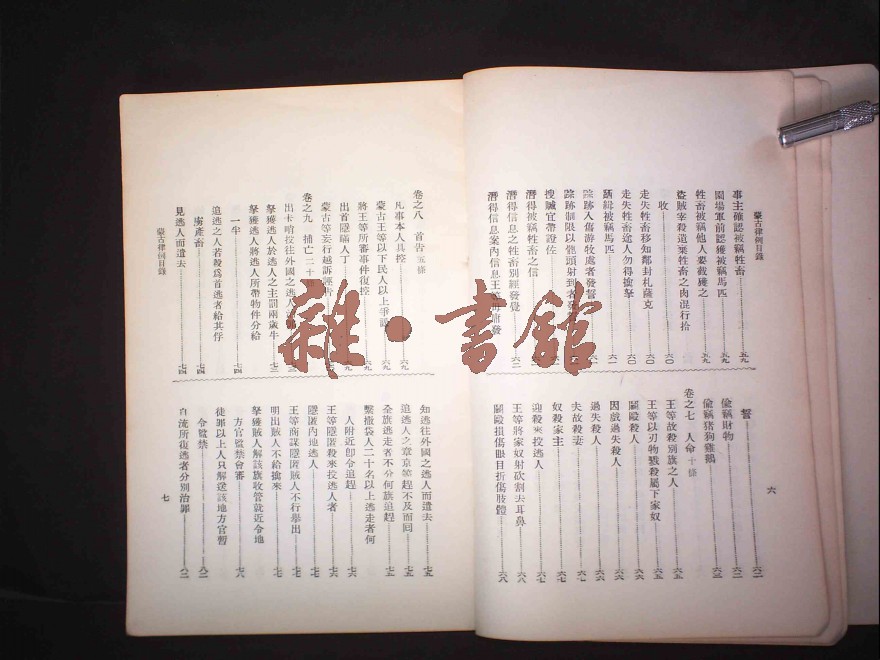 蒙古律例目錄
事主確認被竊牲畜……五九
圍場軍前認獲被竊馬匹……五九
牲畜被竊他人要截獲之……五九
盜賊宰殺遺棄牲畜之肉混行拾
收……六〇
走失牲畜移知鄰封札薩克……六〇
走失牲畜逾人勿得擒拏……六〇
躧緝被竊馬匹……六一
踪跡入傷游牧處者發誓
踪跡制限以骲頭射到者
搜贓官帶證佐
潛得被竊牲畜之信
潛得信息之牲畜別經發覺……六二
潛得信息案內信息王等前首發
誓……六二
偷竊財物……六二
偷竊猪狗雞鵝……六三
卷之七 人命十條
王等故殺別旗之人……六五
王等以刃物戮殺屬下家奴……六五
鬬毆殺人……六六
因戲過失殺人……六六
過失殺人……六六
夫故殺妻……六七
奴殺家主……六七
迎殺來投逃人……六七
王等將家奴射砍割去耳鼻……六八
鬬毆損傷眼目折傷肢體……六八
六
卷之八 首告五條
凡事本人具控……六九
蒙古王等以下民人以上爭訟……六九
將王等所審事件復控……六九
出首隱瞞人丁
蒙古等妄行越訴誣告
卷之九 捕亡二十條
出卡哨投往外國之逃人
拏獲逃人於逃人之主罰兩歲牛……七三
拏獲逃人將逃人所帶物件分給
一半……七四
追逃之人若殺爲首逃者給其俘
虜產畜……七四
見逃人而遣去……七四
蒙古律例目錄
知逃往外國之逃人而遣去……七五
追逃人之章京等趕不及而回……七五
全旗逃走者不分何旗追趕……七五
繫撒袋人二十名以上逃走者何
人附近卽令追趕……七六
王等隱匿殺來投逃人者……七六
隱匿內地逃人……七七
王等商謀隱匿賊人不行舉出……七七
明出賊人不給擒來……七七
拏獲賊人解該旗收管就近令地
方官監禁會審……七八
徒罪以上人只解送該地方官暫
令監禁……八二
自流所復逃者分別治罪……八二
七
雜·書館